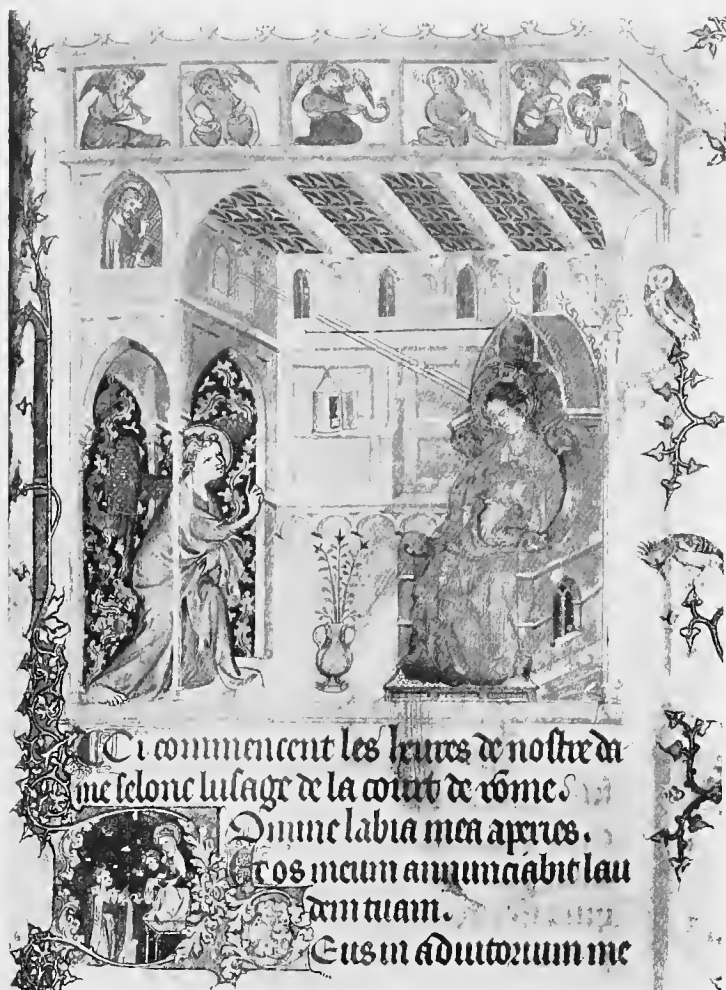 Ci commencent les heures de nostre da
me selonc lusage de la court de rõme.
Omine labia mea aperies.
Et os meum annunciabit lau
dem tuam.
Eus in adiutorium me